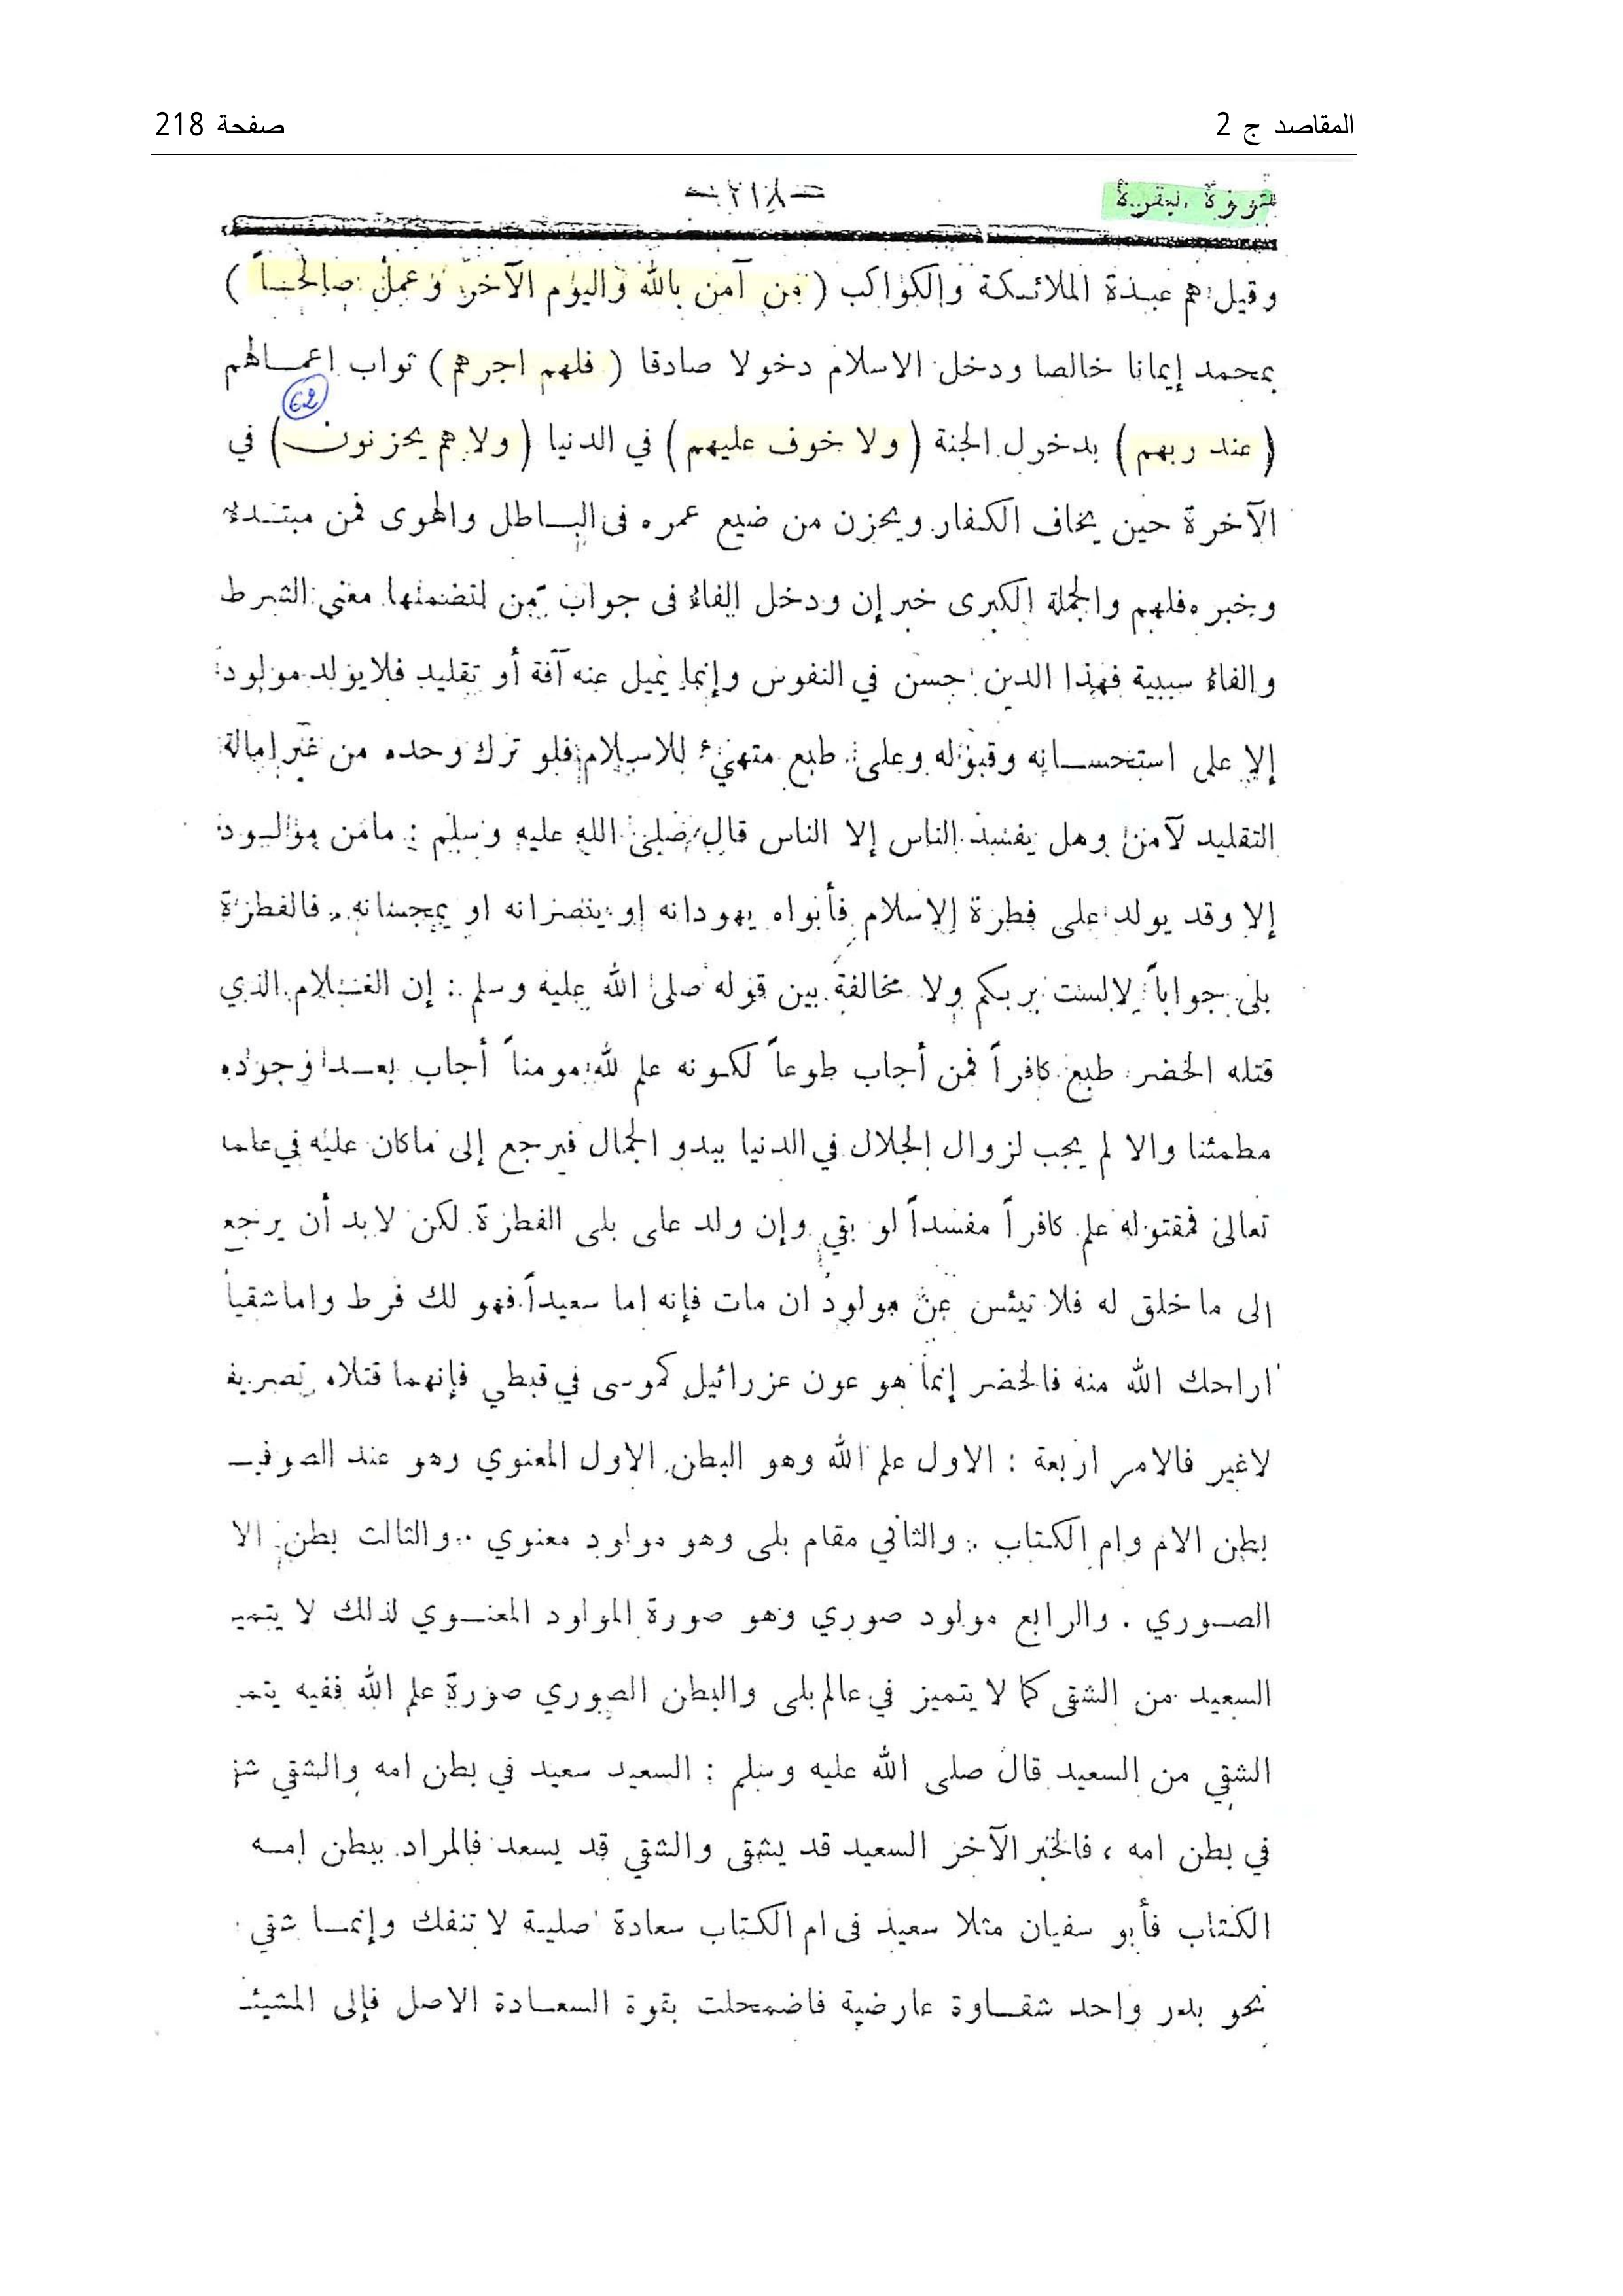 المقاصد ج 2
صفحة 218
سورة البقرة
=٢١٨=
وقيل هم عبدة الملائكة والكواكب ( من آمن بالله واليوم الآخر وعمل صالحـاً )
بمحمد إيمانا خالصا ودخل الاسلام دخولا صادقا ( فلهم اجرهم ) ثواب اعمـالهم
62
( عند ربهم ) بدخول الجنة ( ولا خوف عليهم ) في الدنيا ( ولا هم يحزنون ) في
الآخرة حين يخاف الكفار ويحزن من ضيع عمره فى البـاطل والهوى فمن مبتـدء
وخبره فلهم والجملة الكبرى خبر إن ودخل الفاء فى جواب من لتضمنها معنى الشرط
والفاء سببية فهذا الدين حسن في النفوس وإنما يميل عنه آفة أو تقليد فلا يولد مولود
إلا على استحسـانه وقبوله وعلى طبع متهيئ للاسلام فلو ترك وحده من غير إمالة
التقليد لآمن وهل يفسد الناس إلا الناس قال صلى الله عليه وسلم : مامن مولـود
إلا وقد يولد على فطرة الاسلام فأبواه يهودانه او ينصرانه او يمجسانه . فالفطرة
بلى جواباً لالست بربكم ولا مخالفة بين قوله صلى الله عليه وسلم : إن الغـلام الذي
قتله الخضر طبع كافراً فمن أجاب طوعاً لكونه علم لله مومناً أجاب بعـد وجوده
مطمئنا والا لم يجب لزوال الجلال في الدنيا ببدو الجمال فيرجع إلى ماكان عليه في علمه
تعالى فمقتوله علم كافراً مفسداً لو بقي وإن ولد على بلى الفطرة لكن لابد أن يرجع
الى ما خلق له فلا تيئس عن مولود ان مات فإنه اما سعيداً فهو لك فرط واما شقياً
اراحك الله منه فالخضر إنما هو عون عزرائيل كموسى في قبطي فإنهما قتلاه تصريف
لاغير فالامر اربعة : الاول علم الله وهو البطن الاول المعنوي وهو عند الصوفيـ
بطن الام وام الكتاب . والثاني مقام بلى وهو مولود معنوي . والثالث بطن الا
الصـوري . والرابع مولود صوري وهو صورة المولود المعنـوي لذلك لا يتميـ
السعيد من الشقى كما لا يتميز في عالم بلى والبطن الصوري صورة علم الله ففيه يتمـ
الشقي من السعيد قال صلى الله عليه وسلم : السعيد سعيد في بطن امه والشقي شقـ
في بطن امه ، فالخبر الآخر السعيد قد يشقى والشقي قد يسعد فالمراد ببطن امـه
الكتاب فأبو سفيان مثلا سعيد فى ام الكتاب سعادة اصلية لا تنفك وإنمـا شقي
نحو بدر واحد شقـاوة عارضية فاضمحلت بقوة السعـادة الاصل فإلى المشيئـ